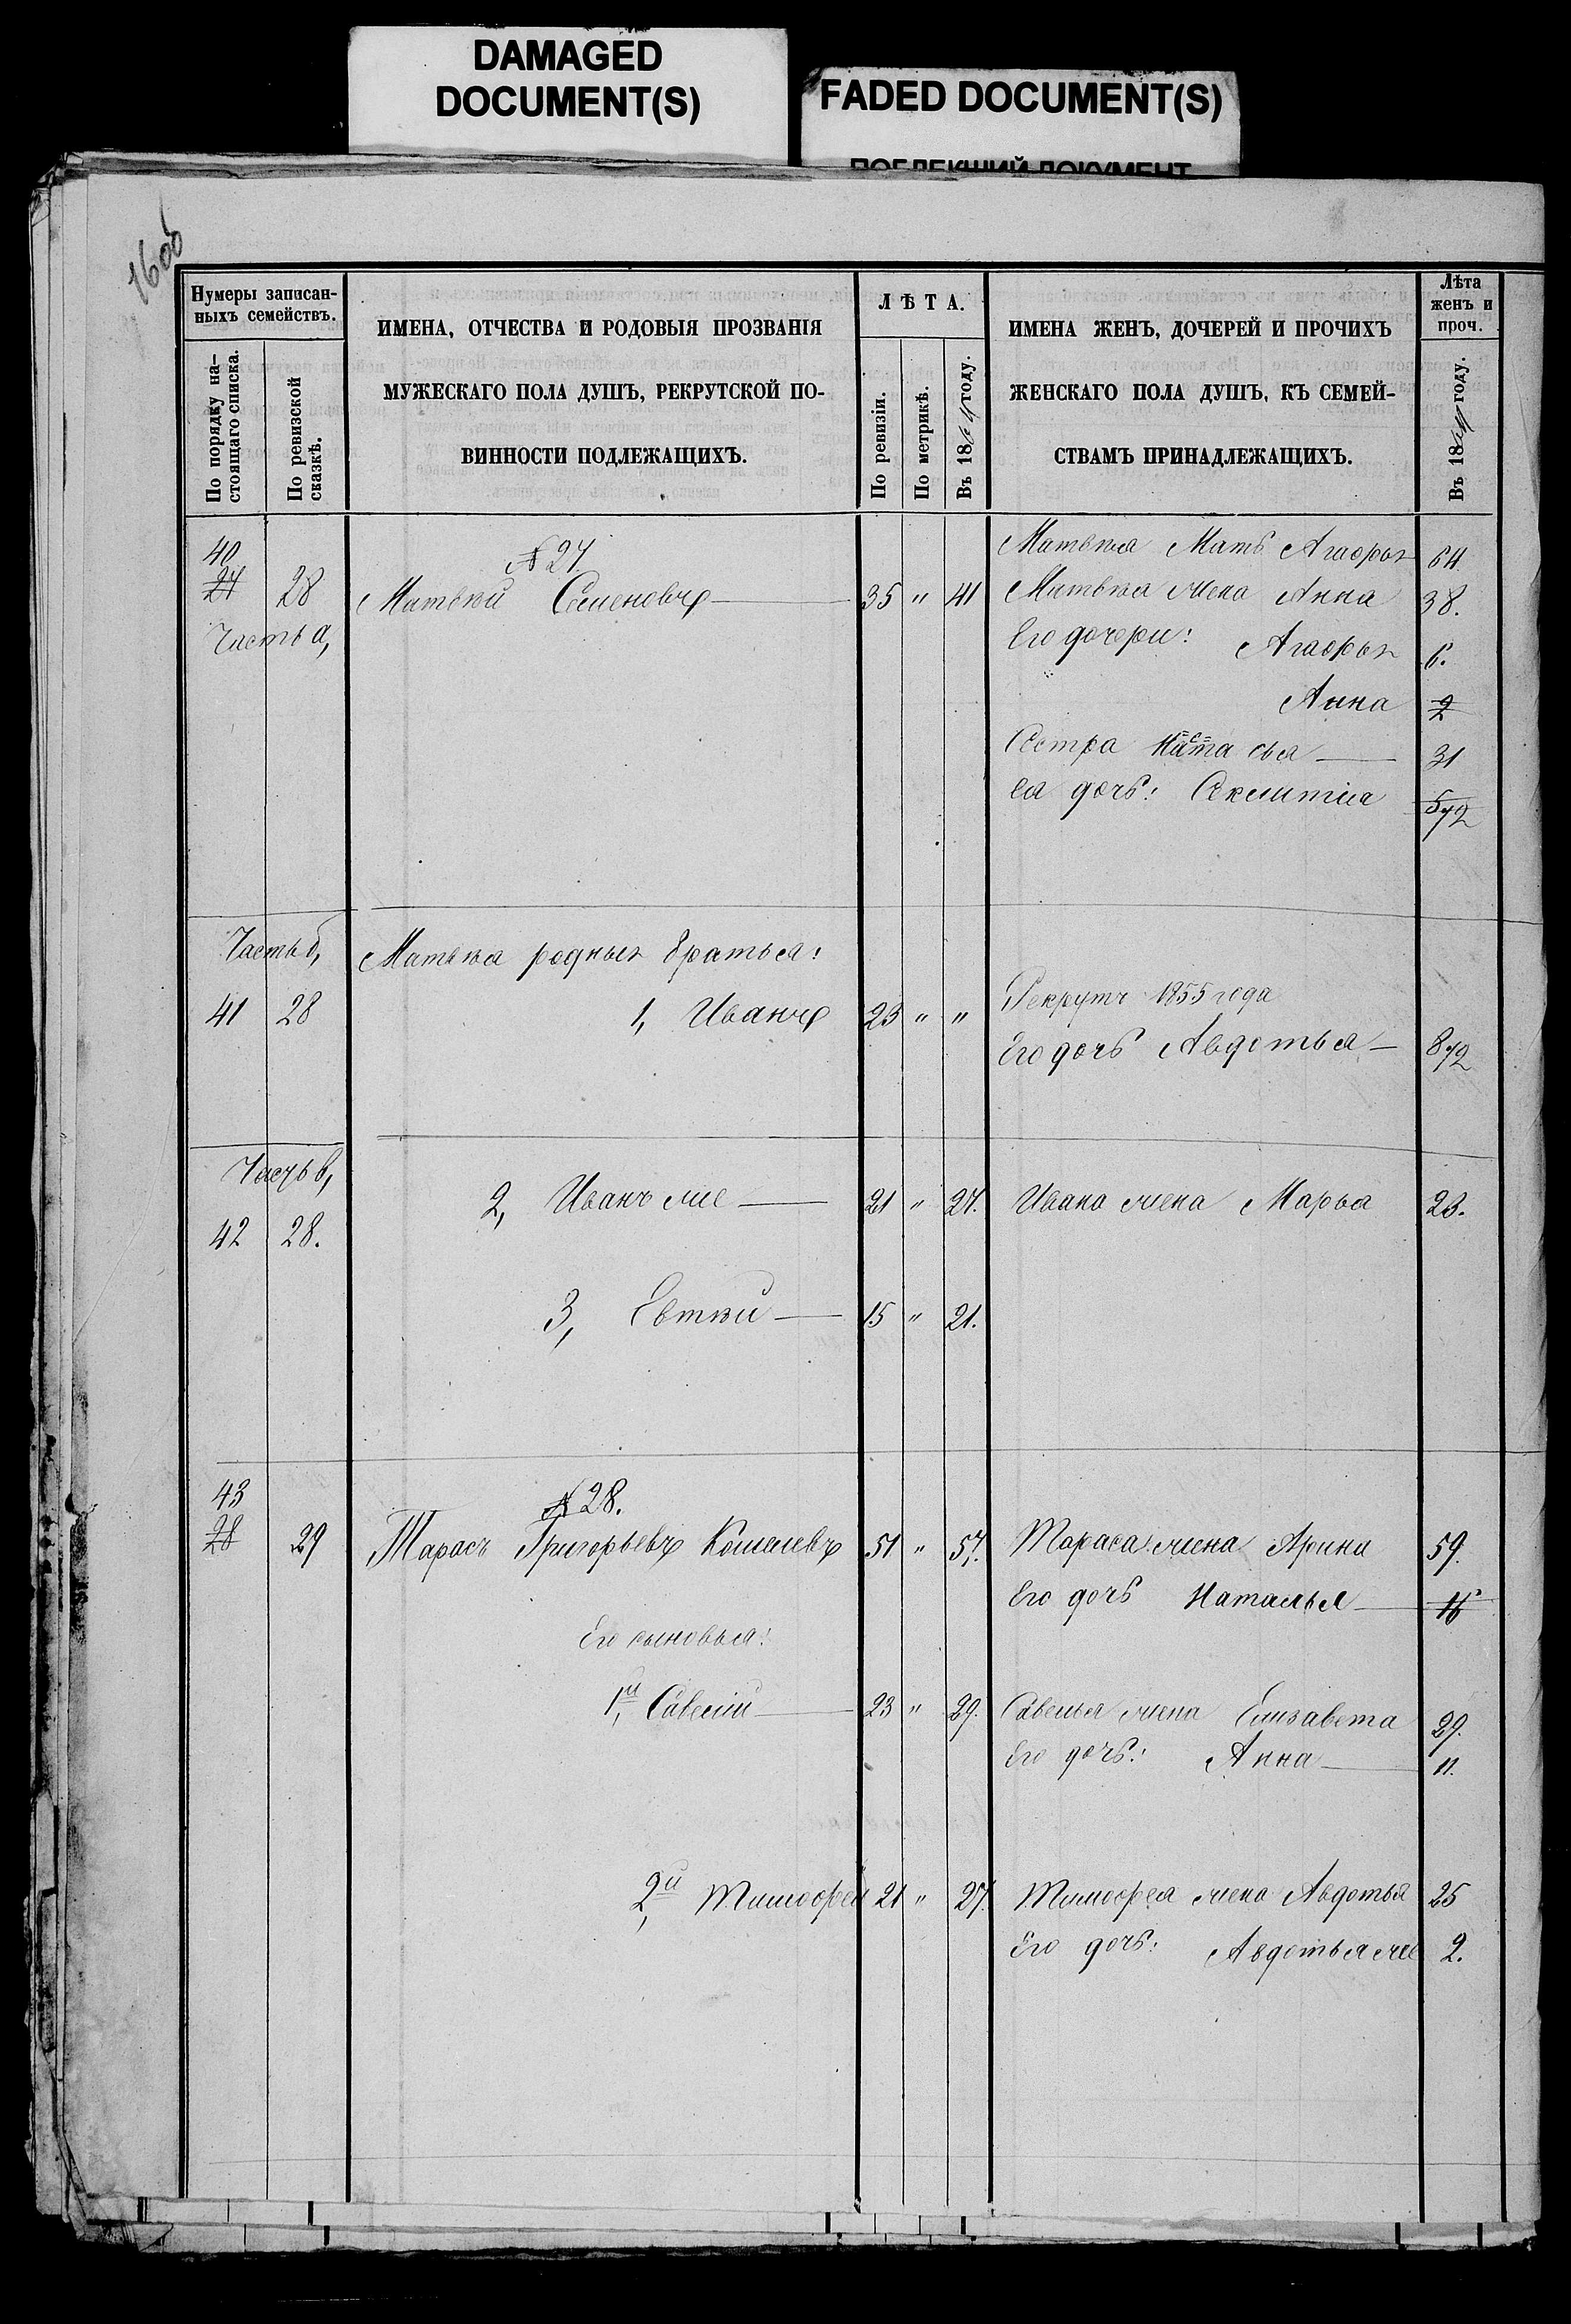 DAMAGED
DOCUMENT(S)
FADED DOCUMENT(S)
ПОБЛЕКШИЙ ДОКУМЕНТ
160об
Нумеры записан-
ныхъ семействъ.
По порядку на-
стоящаго списка.
По ревизской
сказкѣ.
ИМЕНА, ОТЧЕСТВА И РОДОВЫЯ ПРОЗВАНІЯ
МУЖЕСКАГО ПОЛА ДУШЪ, РЕКРУТСКОЙ ПО-
ВИННОСТИ ПОДЛЕЖАЩИХЪ.
ЛѢТА.
По ревизіи.
По метрикѣ.
Въ 1864 году.
ИМЕНА ЖЕНЪ, ДОЧЕРЕЙ И ПРОЧИХЪ
ЖЕНСКАГО ПОЛА ДУШЪ, КЪ СЕМЕЙ-
СТВАМЪ ПРИНАДЛЕЖАЩИХЪ.
Лѣта
женъ и
проч.
Въ 1864 году.
40
№ 27.
Матвѣя Мать Агафья 64
27 28 Матвѣй Семеновъ 35 " 41 Матвѣя жена Анна 38.
Часть а,
Его дочери: Агафья 6.
Анна 2
Сестра Настасья 31
ея дочь: 5 1/2
Часть б,
Матвѣя родныя братья:
41 28 1, Иванъ 23 " " Рекрутъ 1855 года
Его дочь Авдотья 8 1/2
Часть в,
42 28. 2, Иванъ же 21 " 27. Ивана жена Марья 23.
3, Евтѣй 15 " 21.
43
№ 28.
28 29 Тарасъ Григорьевъ Кошелевъ 51 " 57. Тараса жена Арина 59.
Его дочь Наталья 16
Его сыновья:
1й, Савелій 23 " 29. Савелья жена Елизавета 29.
Его дочь: Анна 11.
2й, Тимофей 21 " 27. Тимофея жена Авдотья 25
Его дочь: Авдотья же 2.